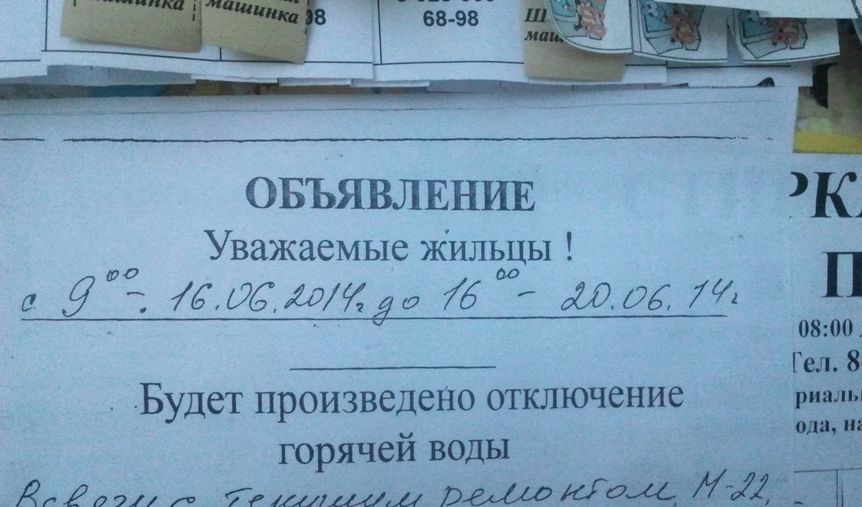 машинка
машинка
98
68-98
ОБЪЯВЛЕНИЕ
Уважаемые жильцы !
с 9⁰⁰-. 16.06.2014г до 16⁰⁰ - 20.06.14г
Будет произведено отключение
горячей воды
В связи с текущим ремонтом М-22,
РК
П
08:00
Тел. 8
ода, на